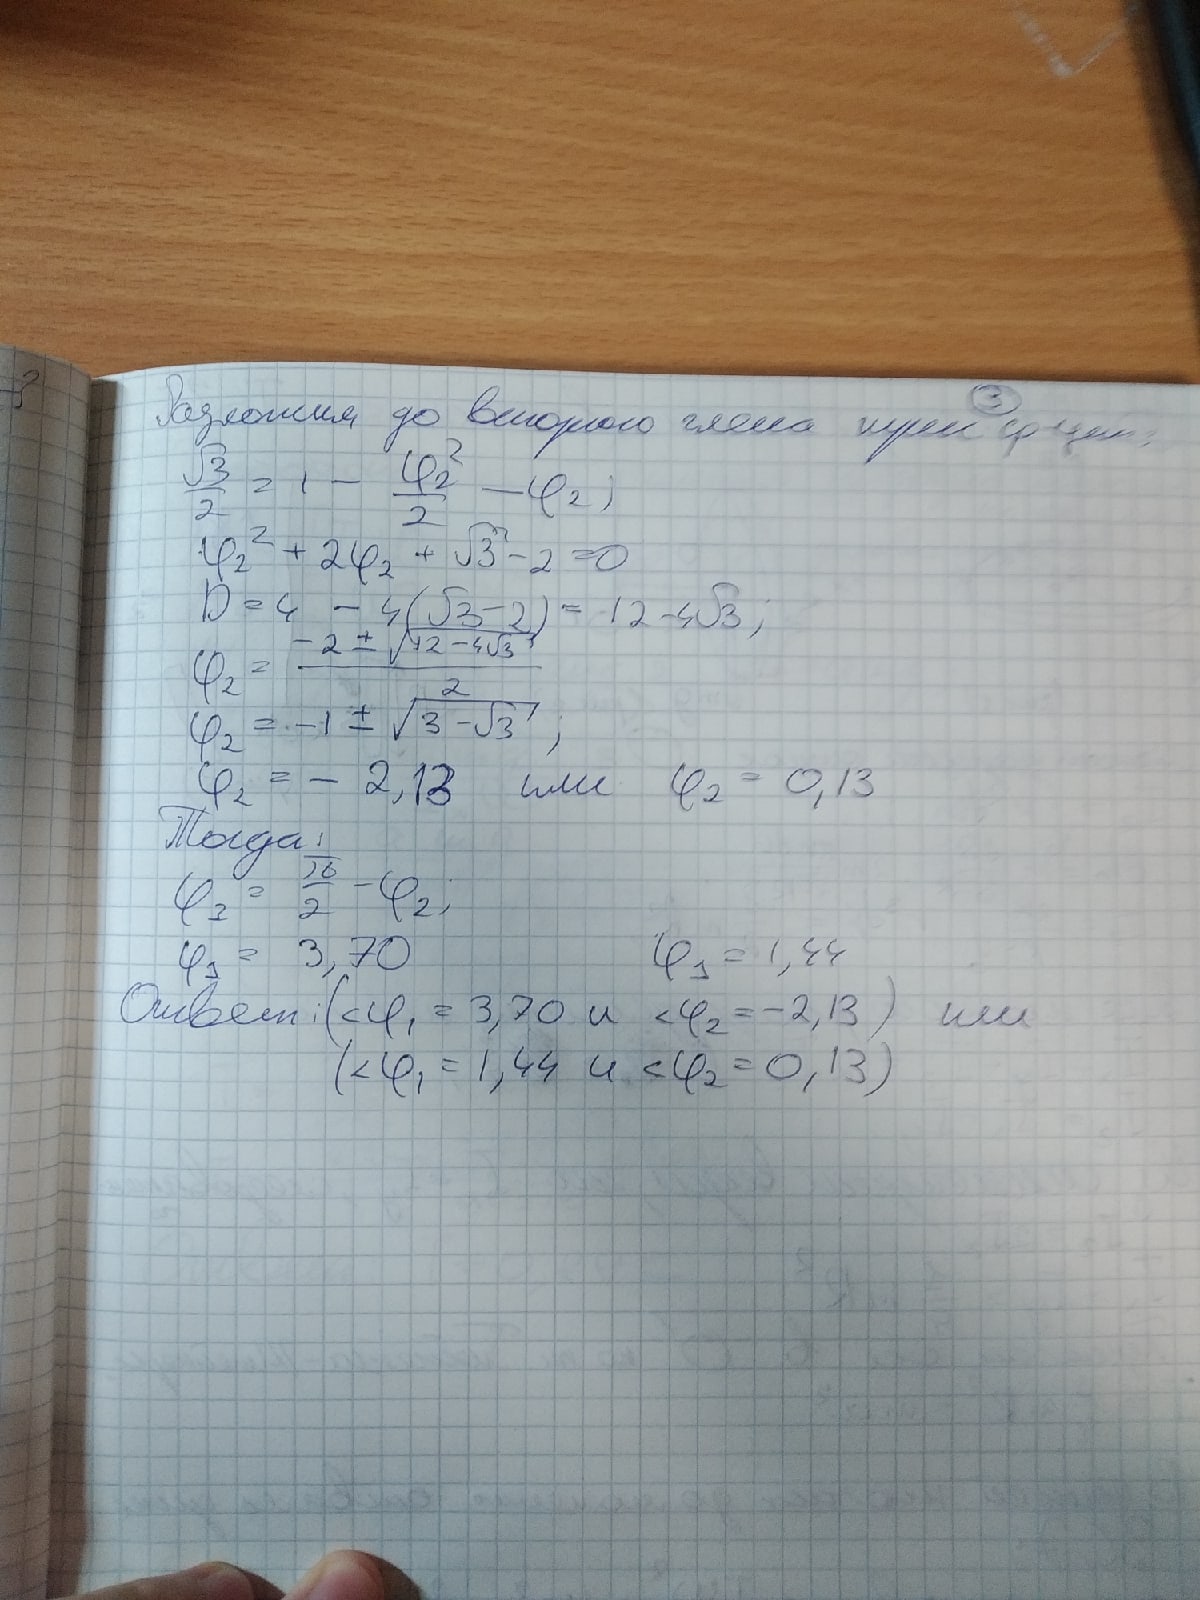 ③
Разложим до второго члена триг ф-ции:
√3/2 = 1 − φ₂²/2 − φ₂;
φ₂² + 2φ₂ + √3 − 2 = 0
D = 4 − 4(√3−2) = 12−4√3;
φ₂ = (−2 ± √(12−4√3))/2
φ₂ = −1 ± √(3−√3);
φ₂ = − 2,13 или φ₂ = 0,13
Тогда:
φ₁ = π/2 − φ₂;
φ₁ = 3,70 φ₁ = 1,44
Ответ: (<φ₁ = 3,70 и <φ₂ = −2,13) или
(<φ₁ = 1,44 и <φ₂ = 0,13)